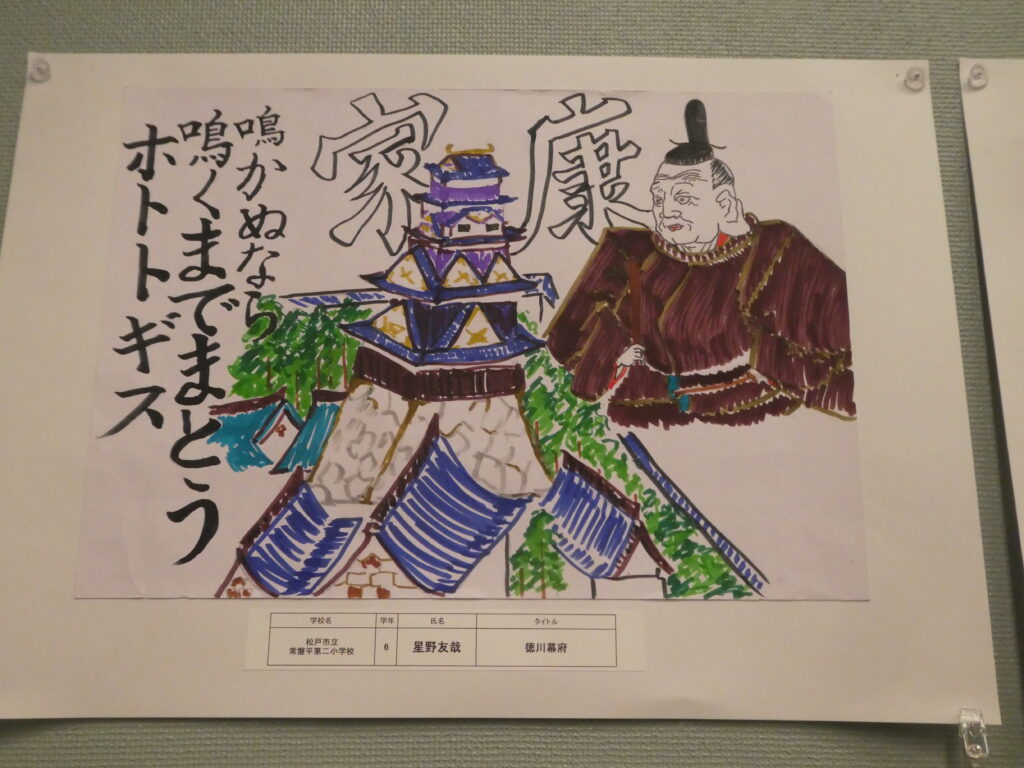 家康
鳴かぬなら
鳴くまでまとう
ホトトギス
学校名 学年 氏名 タイトル
松戸市立
常盤平第二小学校 6 星野友哉 徳川幕府